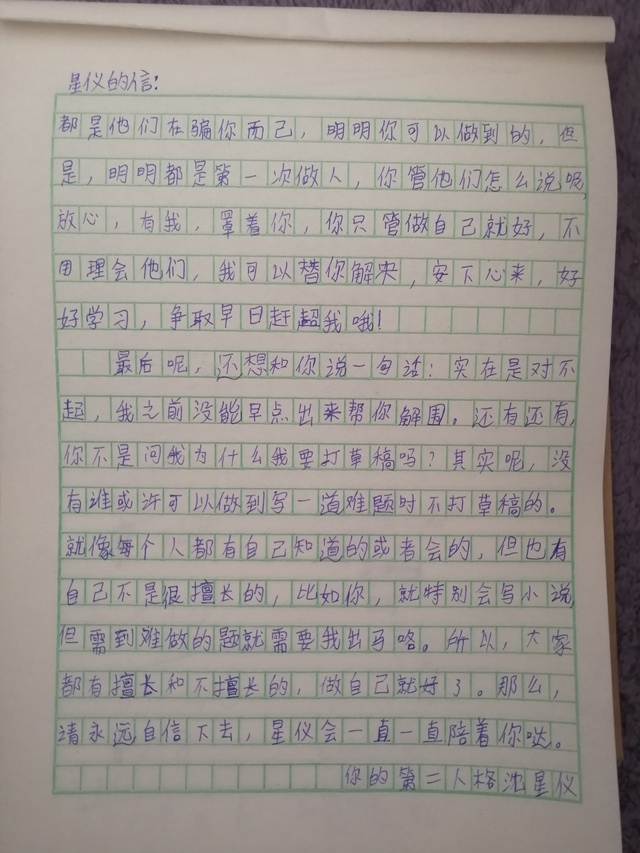 星仪的信：
都是他们在骗你而已，明明你可以做到的，但
是，明明都是第一次做人，你管他们怎么说呢，
放心，有我，罩着你，你只管做自己就好，不
用理会他们，我可以替你解决，安下心来，好
好学习，争取早日赶超我哦！
最后呢，还想和你说一句话：实在是对不
起，我之前没能早点出来帮你解围。还有还有，
你不是问我为什么我要打草稿吗？其实呢，没
有谁或许可以做到写一道难题时不打草稿的。
就像每个人都有自己知道的或者会的，但也有
自己不是很擅长的，比如你，就特别会写小说，
但需到难做的题就需要我出马咯。所以，大家
都有擅长和不擅长的，做自己就好了。那么，
请永远自信下去，星仪会一直一直陪着你哒。
你的第二人格沈星仪